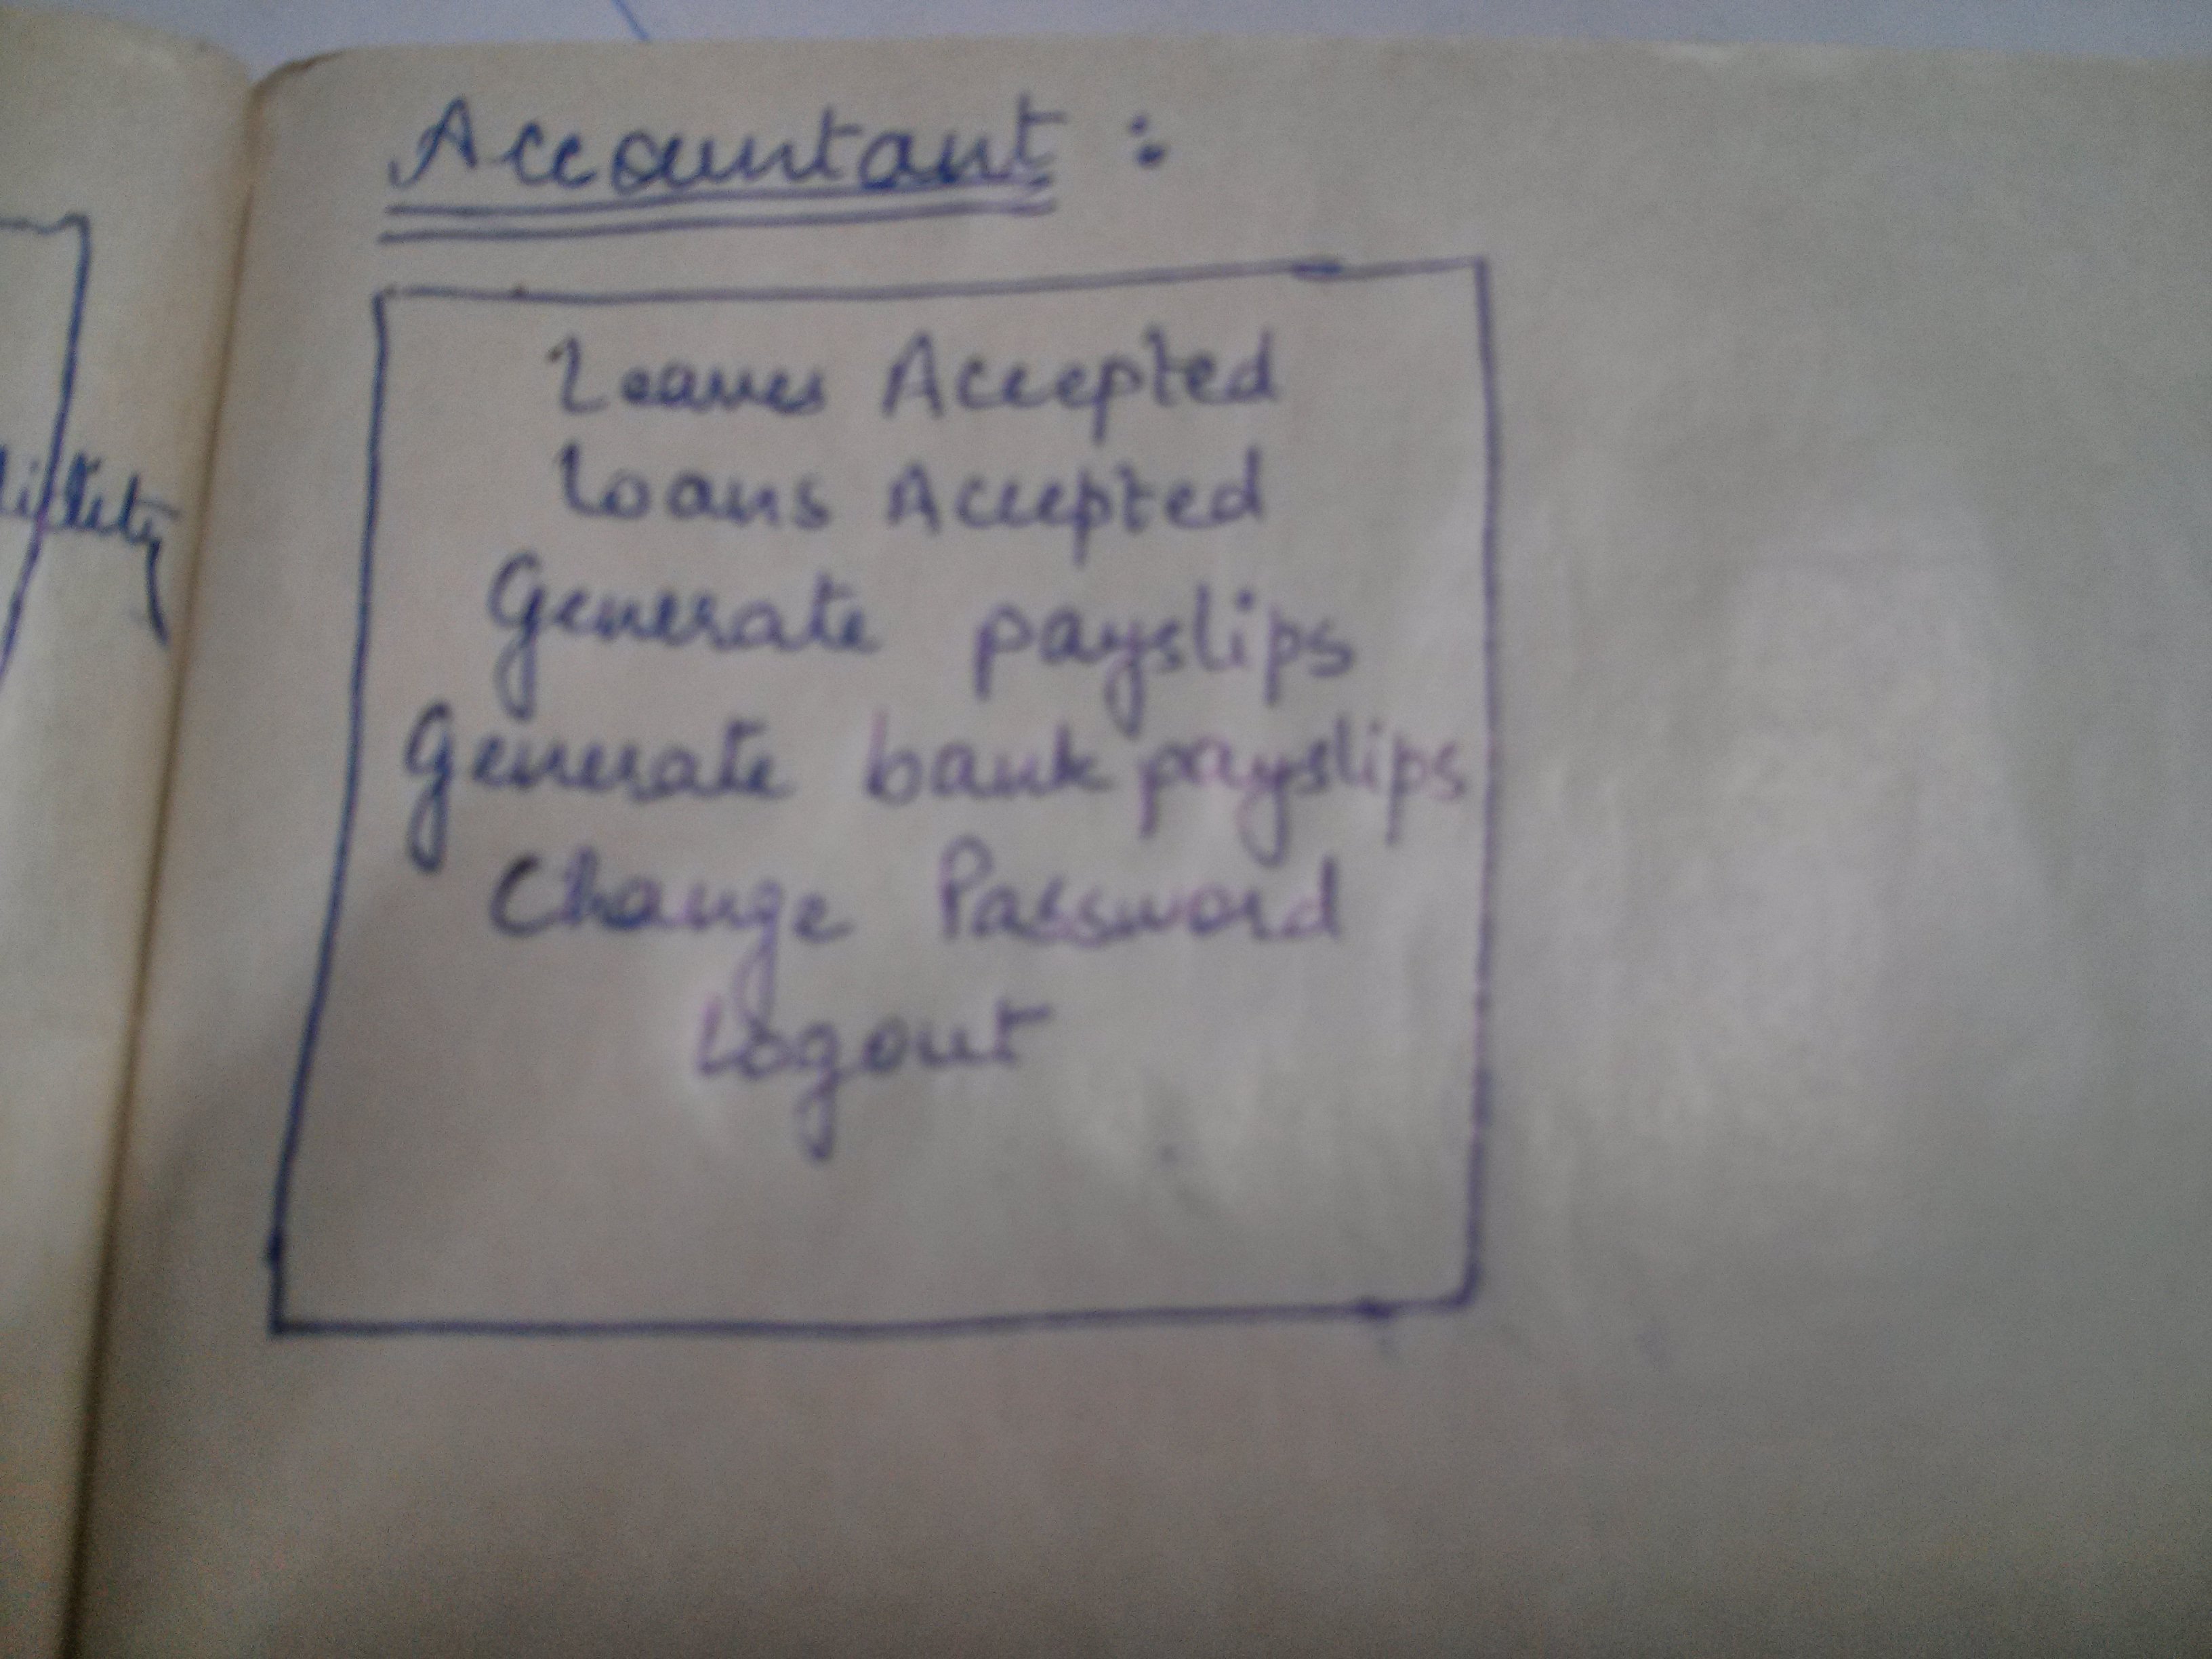 Accountant :
Leaves Accepted
Loans Accepted
Generate payslips
Generate bank payslips
Change Password
Logout